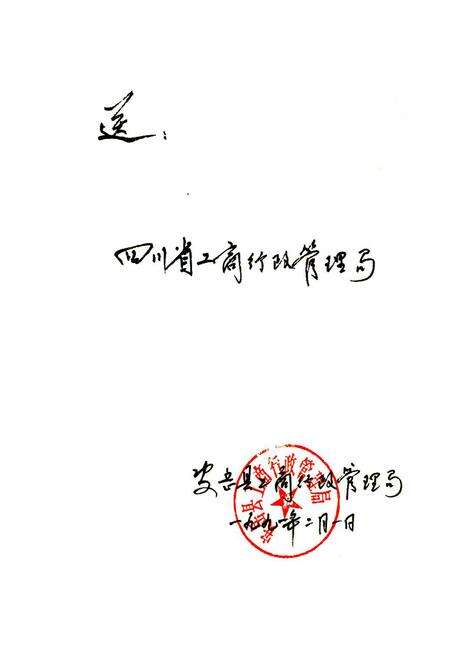 送：
四川省工商行政管理局
安岳县工商行政管理局
一九九一年二月一日
安岳县工商行政管理局